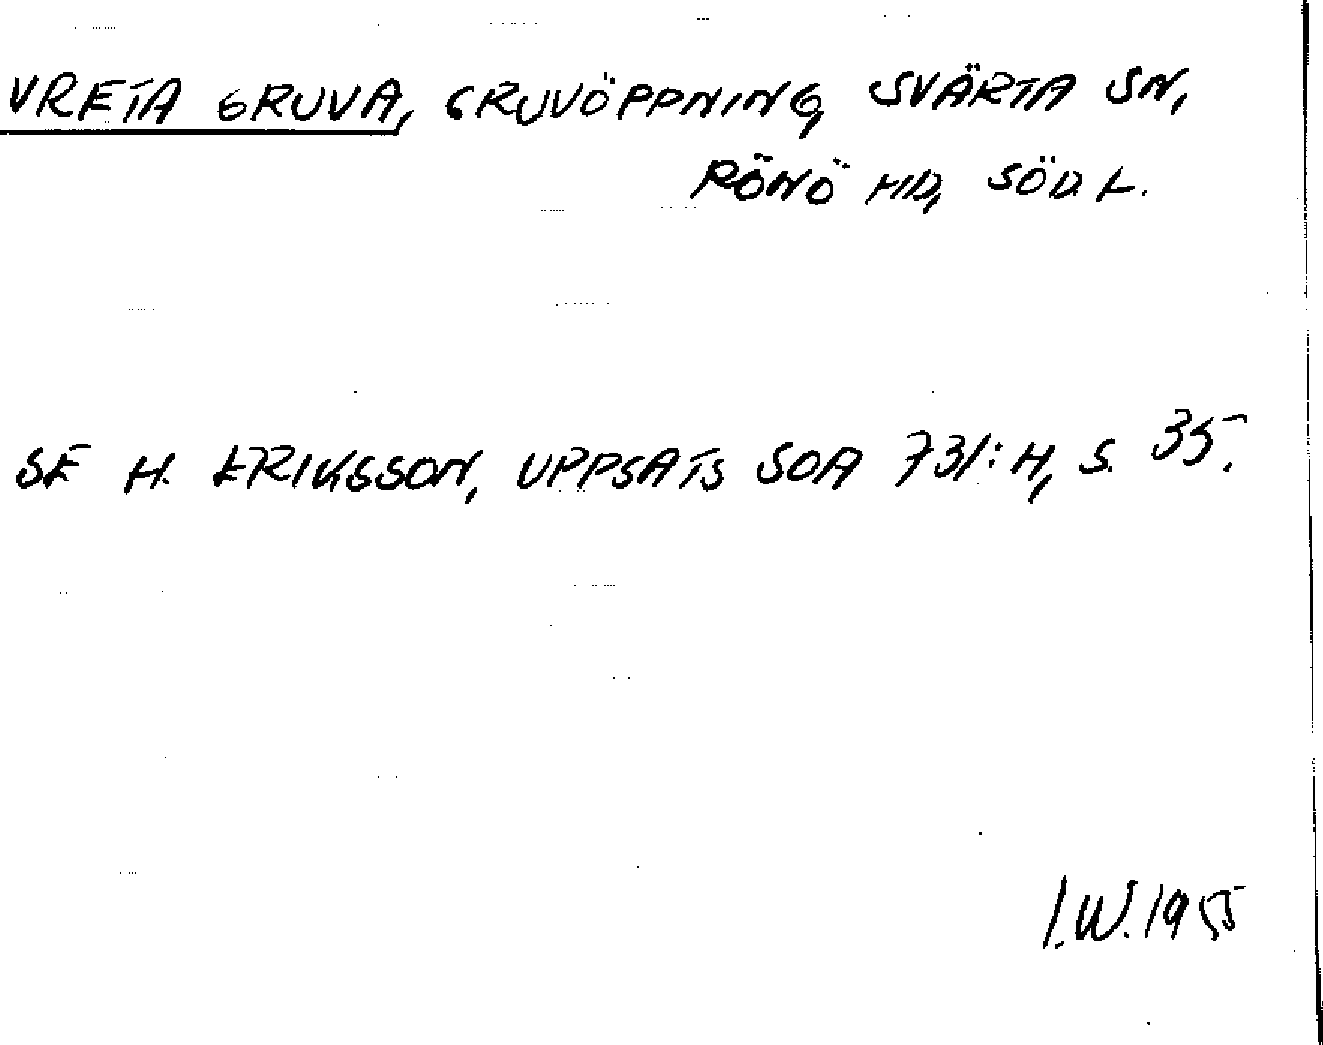 VRETA GRUVA, GRUVÖPPNING, SVÄRTA SN,
RÖNÖ HD, SÖDL.
SE H. ERIKSSON, UPPSATS SOA 731:H, S. 35.
I.W. 1955